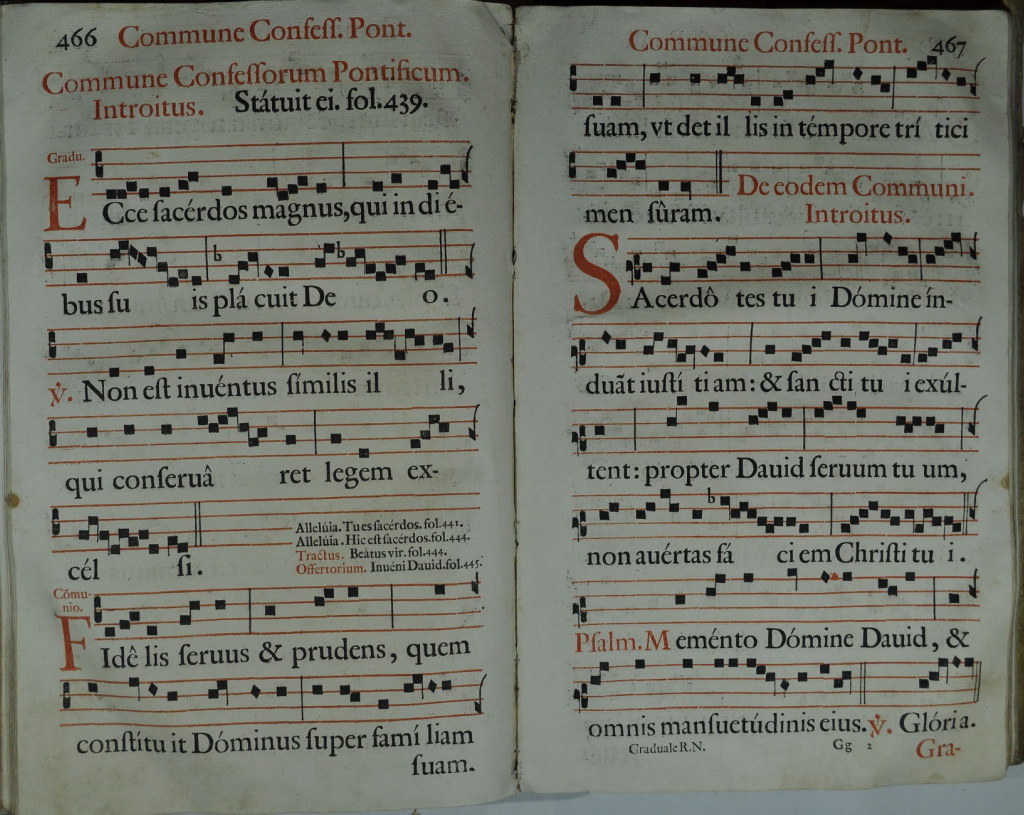 466 Commune Confeſſ. Pont.
Commune Confeſſorum Pontificum.
Introitus. Státuit ei. fol.439.
Gradu.
ECce ſacérdos mágnus, qui in di é-
bus ſu is plá cuit De o.
℣. Non eſt inuéntus ſímilis il li,
qui conſeruâ ret legem ex-
cél ſi.
Allelúia. Tu es ſacérdos. fol.441.
Allelúia. Hic eſt ſacérdos. fol.444.
Tractus. Beátus vir. fol.444.
Offertorium. Inuéni Dauid. fol.445.
Cõmu-
nio.
FIdê lis ſeruus & prudens, quem
conſtitu it Dóminus ſuper famí liam
ſuam.
Commune Confeſſ. Pont. 467
ſuam, vt det il lis in témpore trí tici
men ſûram.
De eodem Communi.
Introitus.
SAcerdô tes tu i Dómine ín-
duãt iuſtí ti am: & ſan cti tu i exúl-
tent: propter Dauid ſeruum tu um,
non auértas fá ci em Chriſti tu i.
Pſalm. Meménto Dómine Dauid, &
omnis manſuetúdinis eius. ℣. Glória.
Graduale R.N. Gg 2 Gra-